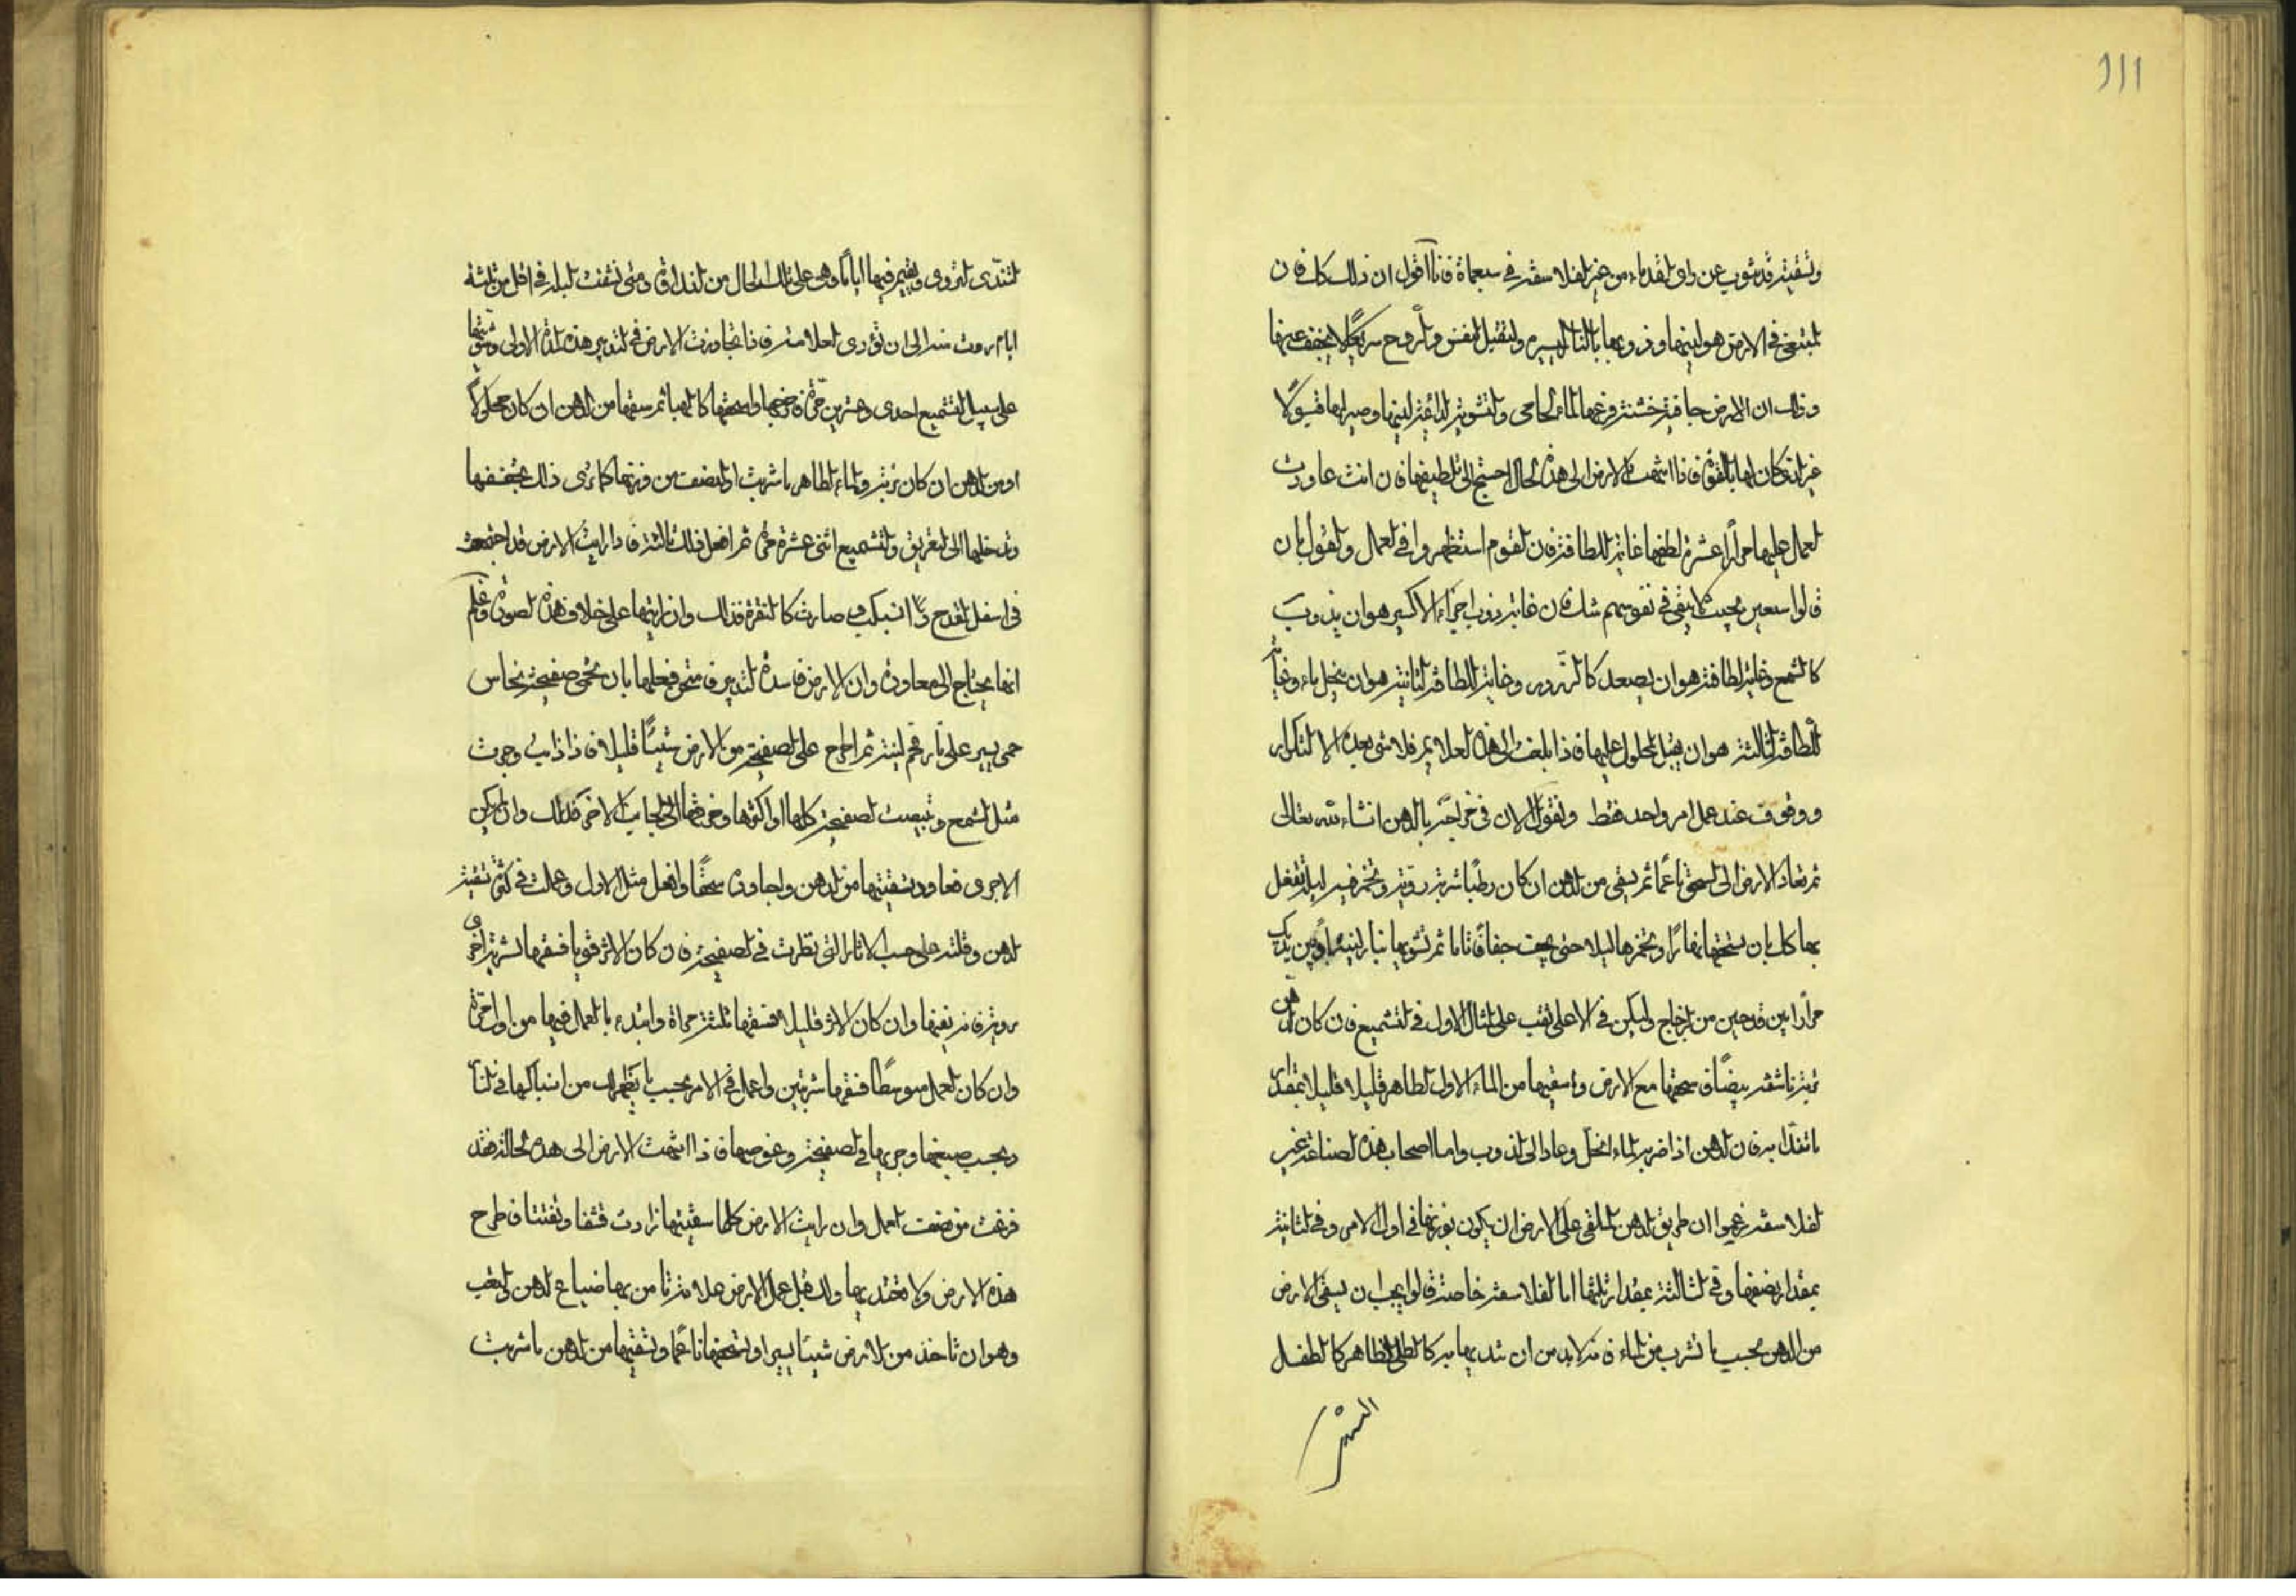 111
وتسقيته قد ينوب عن راى القدماء من غير الفلاسفة في سبعماة فانا اقول ان ذلك كله فان
المبتغى في الارض هو لينها وذوبها بالنار اليسيرة ولتقبل النفس والروح سريعًا
وذلك ان الارض جافية خشنة فرغها الماء الحامى والتشوية الدائمة لينها وصيرها قبولا
غير انه كان لها بالقوة فاذا انتهت الارض الى هذه الحال احتيج الى تلطيفها فان انت عاودت
العمل عليها مرارًا عشرة لطفها غاية اللطافة فان القوم استظهروا في العمل والقول بان
قالوا سبعين بحيث لا يبقى في نفوسهم شك فان غاية ذوب اجزاء الاكسير هو ان يذوب
كالشمع وغاية لطافته هو ان يصعد كالزرور وغاية اللطافة الثانية هو ان ينحل ماء وغاية
اللطافة الثالثة هو ان يقبل المحلول عليها فاذا بلغت الى هذه العلايم فلا شى بعده الا التكرار
ووقوف عند عمل امر واحد فقط ولنقول الان في خراجته بالدهن انشاء الله تعالى
ثم تعاد الارض الى السحق ناعمًا ثم يسقى من الدهن ان كان رطبًا شربة روية وتخمر فيه ليلة تفعل
بها كل بان تسحقها نهارًا وتخمرها ليلا حتى يجف جفافًا تاما ثم تشويها بنار لينة
مرارًا بين قدحين من الزجاج وليكن في الاعلى ثقب على المثال الاول في التشميع فان كان الدهن
تربة ناشفة بيضًا فسحقها مع الارض واسقيها من الماء الاول الطاهر قليلا قليلا بمقدار
ما تندا به فان الدهن اذا ضربه الماء انحل وعاد الى الذوب واما اصحاب هذه الصناعة غير
الفلاسفة زعموا ان طريق الدهن الملقى على الارض ان يكون بوزنها في اول الامر وفي الثانية
بمقدار نصفها وفي الثالثة بمقدار ثلثها اما الفلاسفة خاصة قالوا يجب ان يسقى الارض
من الدهن بحسب ما تشرب من الماء فانه لابد من ان تنديها به كالطل الظاهر كالطفل
لتندى لتروى ويقيم فيها اياما وهى على تلك الحال من النداوة ومتى نشفت البلة في اقل من ثلثة
ايام روت شرا الى ان تؤدى العلامة فاذا تجاوزت الارض في التدبير هذه المدة الاولى وسقيتها
على سبيل التشميع احدى وعشرين مرة فرضها واسحقها كالهبا ثم سقها من الدهن ان كان محلولًا
او من الدهن ان كان تربة والماء الطاهر ما شربت او لنصف من وزنها كما ترى ذلك يجففها
وتدخلها الى التعريق والتشميع اثنى عشرة مرة ثم افعل ذلك ثالثة فاذا رايت الارض قد اجتمعت
في اسفل القدح وانسبكت وصارت كالنقرة فذلك وان رايتها على خلاف هذه الصورة فاعلم
انها تحتاج الى معاودة وان الارض فاسدة التدبير فامتحن فعلها بان تحمى صفيحة نحاس
حمى يسير على نار فحم لينة ثم اطرح على الصفيحة من الارض شيئًا قليلا فاذا ذابت وجرت
مثل الشمع وتبيضت الصفيحة كلها او اكثرها وخرقتها الى الجانب الاخر فذلك وان لم يكن
الاخرى فعاود بتسقيتها من الدهن واجاوده سحقًا وافعل مثل الاول وعملت في كثرة تسقية
الدهن وقلته على حسب الاثار التى نظرت في الصفيحة فان كان الاثر قويا فسقها شربة اخرى
روية فانه نفعها وان كان الاثر قليلا فسقها ثلثة مراة وابتدء بالعمل فيها من اول مرة
وان كان العمل متوسطًا فسقها شربتين واعمل في الامر بحسب ما يظهر لك من انسباكها في النار
وبحسب صبغها وجريها في الصفيحة وغوصها فاذا انتهت الارض الى هذه الحالة فقد
فرغت من نصف العمل وان رايت الارض كلما سقيتها زادت قشفا وتفتتا فاطرح
هذه الارض ولا تعتد بها ولك قبل عمل الارض علامة تامن بها ضياع الدهن والتعب
وهو ان تاخذ من الارض شيئا يسيرا وتسحقها ناعمًا وتسقيها من الدهن ما شربت